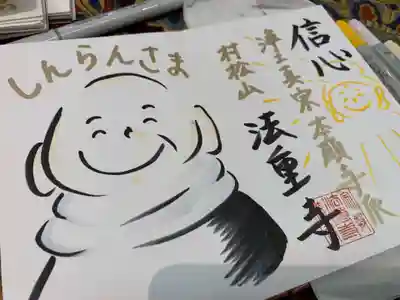 信心
浄土真宗本願寺派
村松山
法重寺
しんらんさま